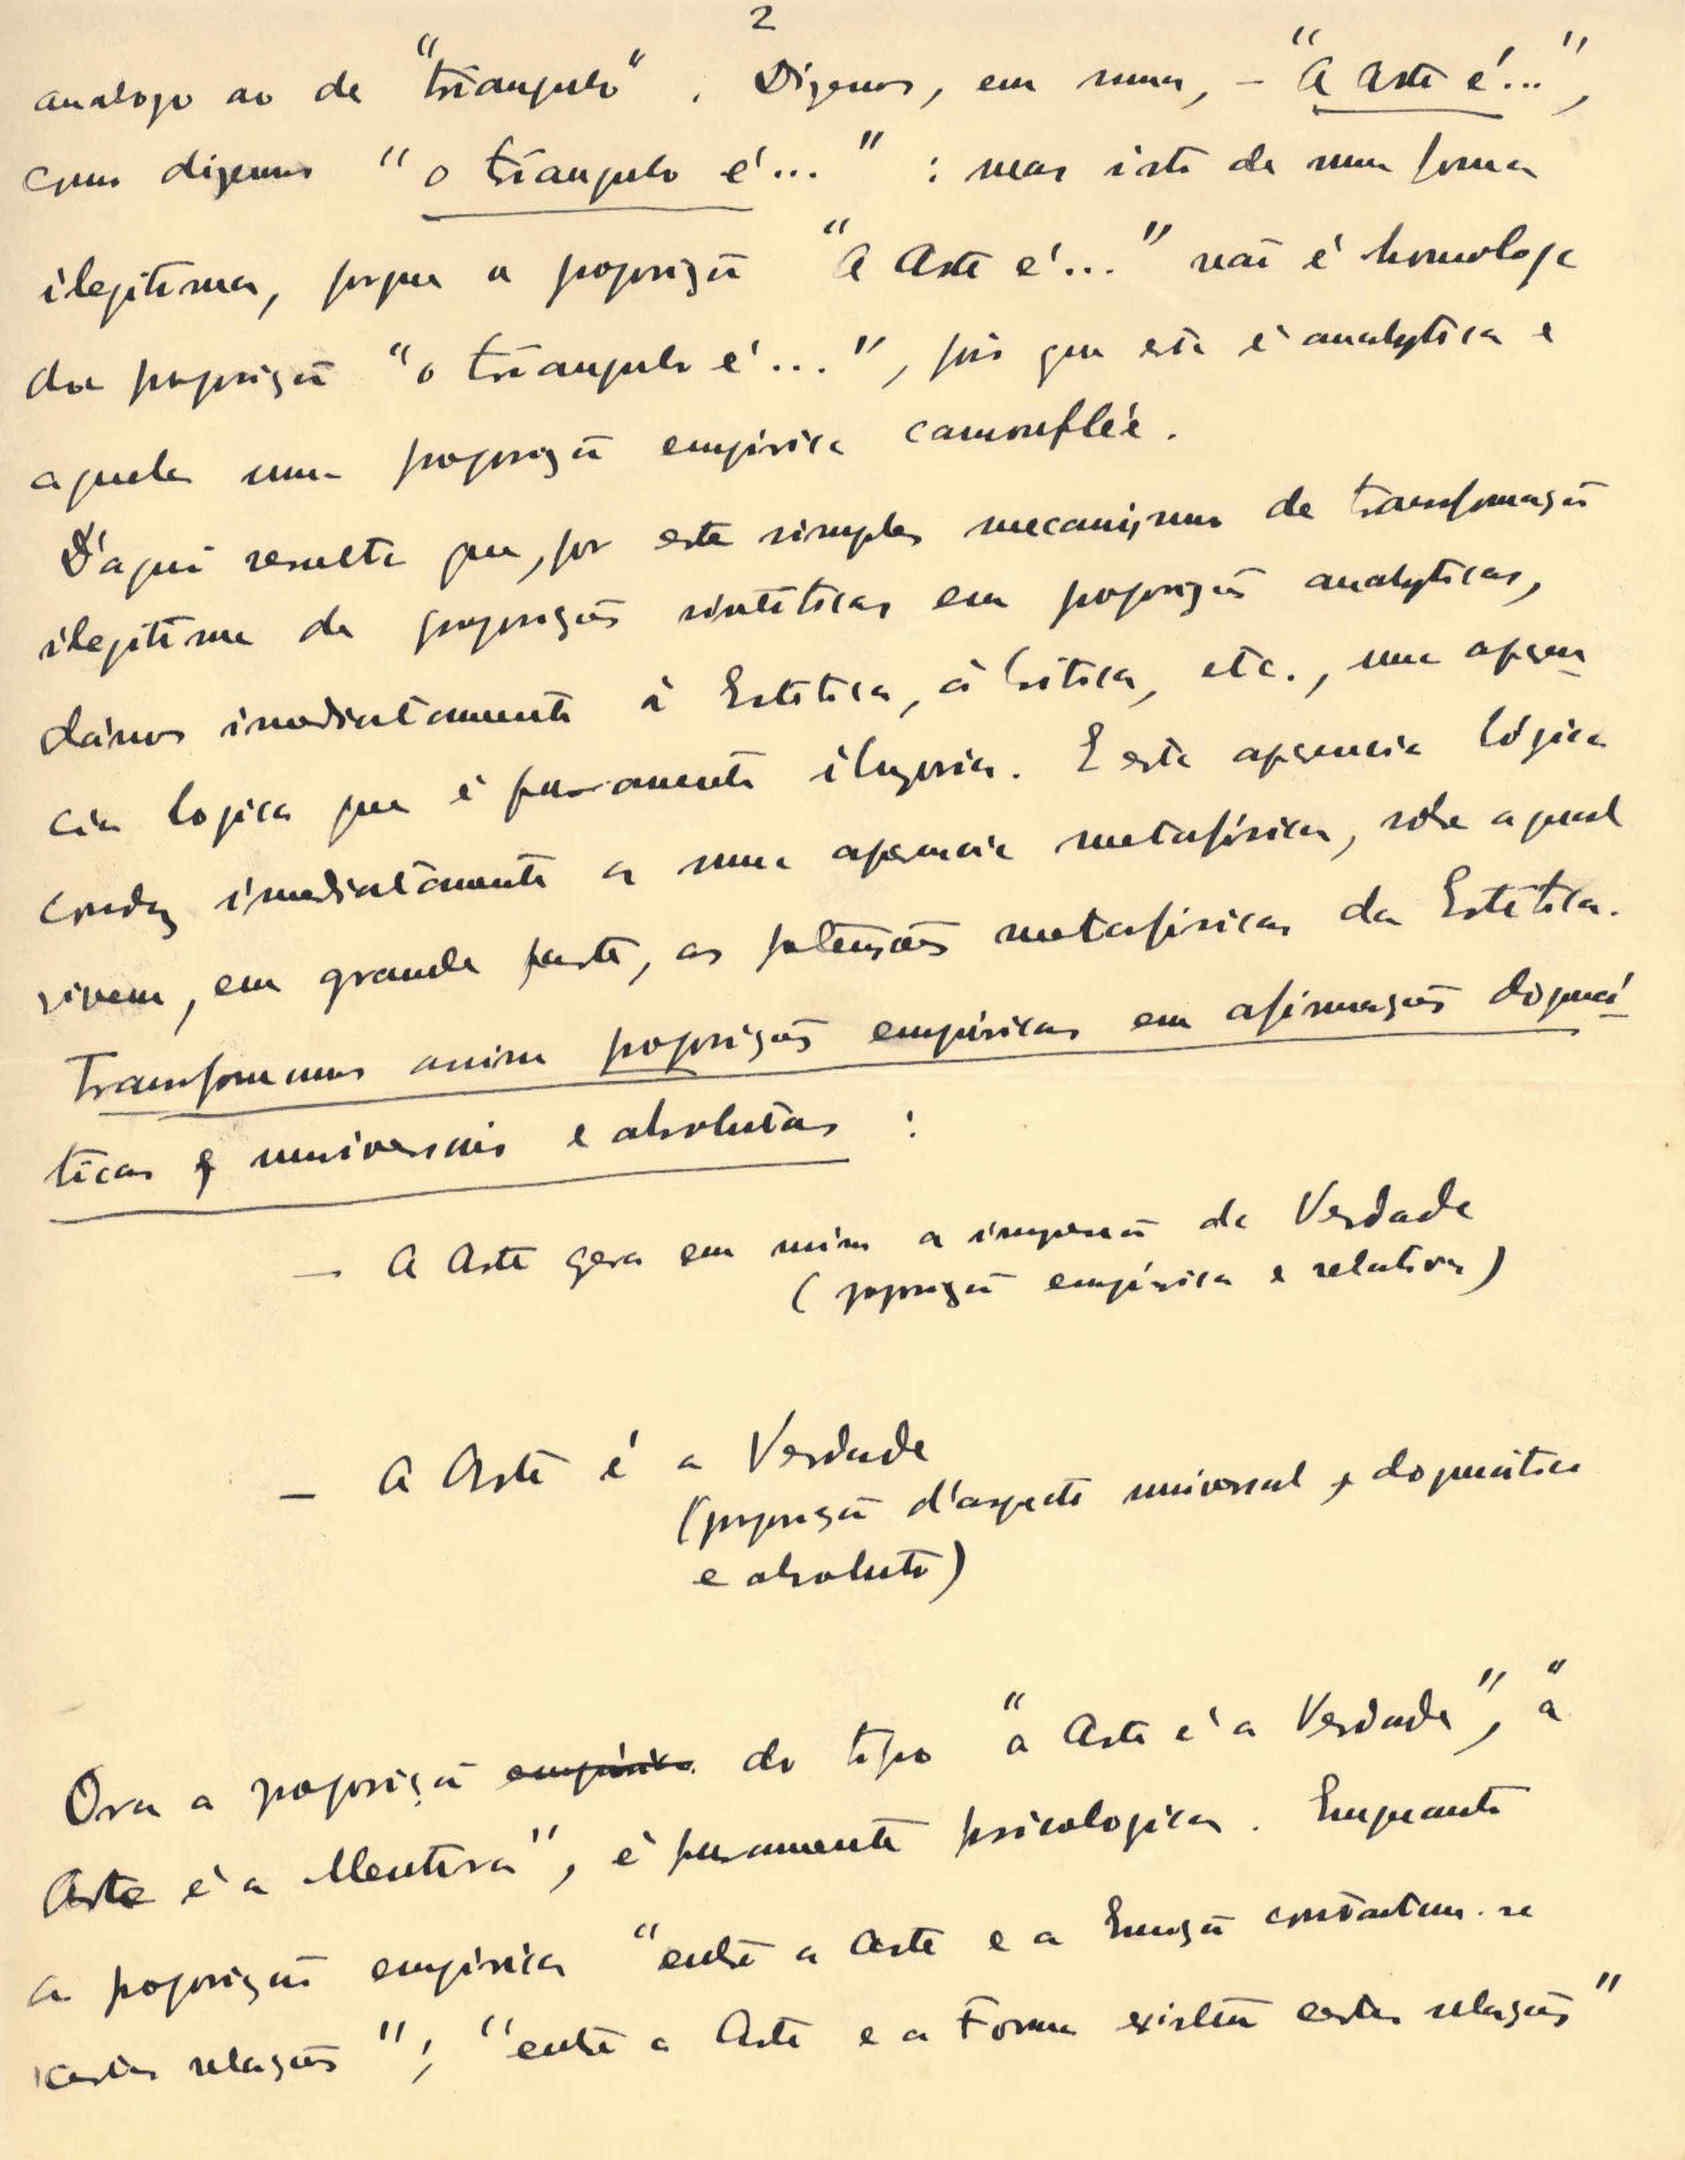 2
analogo ao de "triangulo". Dizemos, em suma, - "A Arte é...",
como dizemos "o triangulo é..." ; mas isto de uma forma
ilegitima, porque a proposição "A Arte é..." não é homologa
da proposição "o triangulo é...", pois que esta é analytica e
aquela uma proposição empirica camouflée.
D'aqui resulta que, por este simples mecanismo de transformação
ilegitima de proposições sintéticas em proposições analyticas,
dámos imediatamente á Estética, á Critica, etc., uma aparen
cia logica que é puramente ilusoria. E esta aparencia lógica
conduz imediatamente a uma aparencia metafísica, sobre a qual
vivem, em grande parte, as pretensões metafísicas da Estética.
Transformamos assim proposições empíricas em afirmações dogmá
ticas universais e absolutas :
- A Arte gera em mim a impressão de Verdade
(proposição empírica e relativa)
- A Arte é a Verdade
(proposição d'aspecto universal, dogmático
e absoluto)
Ora a proposição empírica do tipo "a Arte é a Verdade", "a
Arte é a Mentira", é puramente psicologica. Emquanto
a proposição empirica "entre a Arte e a Emoção constatam-se
certas relações"; "entre a Arte e a Forma existem certas relações"